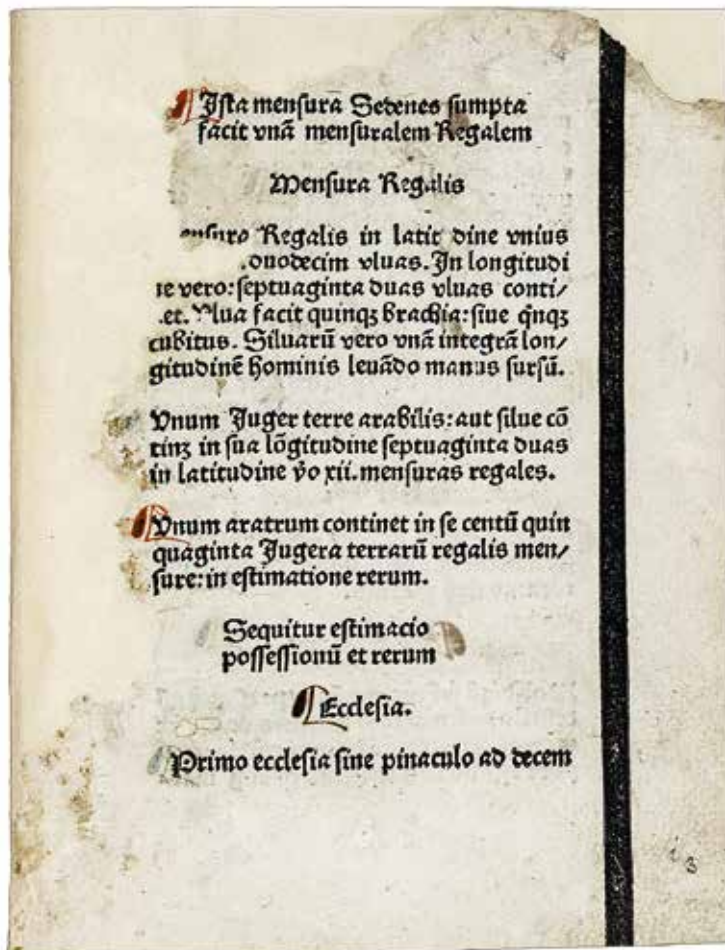 Ista mensura Sedenes sumpta
facit vnā mensuralem Regalem
Mensura Regalis
Regalis in latit dine vnius
duodecim vluas. In longitudi
ne vero: septuaginta duas vluas conti/
et. Vlua facit quinqꝫ brachia: siue q̇nqꝫ
cubitus. Siluarū vero vnā integrā lon/
gitudinē hominis leuādo manus sursū.
Vnum Juger terre arabilis: aut silue cō
tinꝫ in sua lōgitudine septuaginta duas
in latitudine v̊o xii. mensuras regales.
Vnum aratrum continet in se centū quin
quaginta Jugera terrarū regalis men/
sure: in estimatione rerum.
Sequitur estimacio
possessionū et rerum
Ecclesia.
Primo ecclesia sine pinaculo ad decem
3